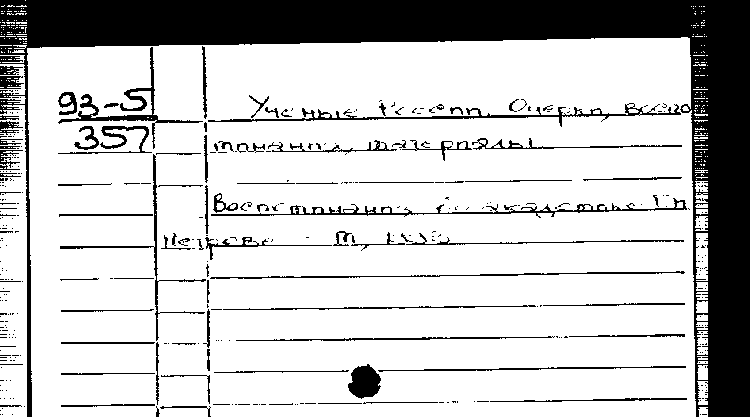 93-5
357
Ученые России. Очерки, воспо
минания, материалы.
Воспоминания об академике
Петрове М,